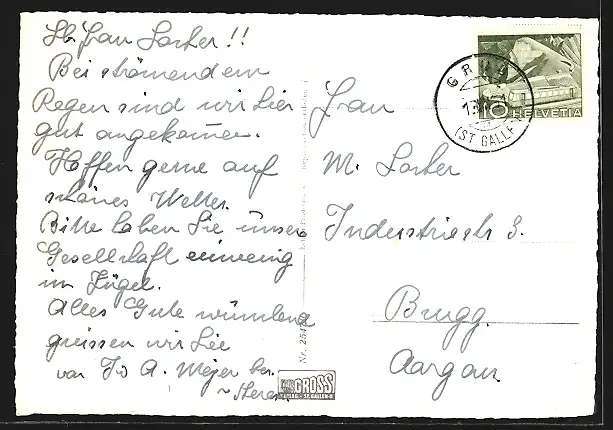 Lb. Frau Locher!!
Bei strömendem
Regen sind wir hier
gut angekommen.
Hoffen gerne auf
schönes Wetter.
Bitte haben Sie unsere
Gesellschaft einwenig
im Zügel.
Alles Gute wünschend
grüssen wir Sie
von A. Meyer
Frau
M. Locher
Industriestr 3.
Brugg.
Aargau
GRUB
(ST. GALLEN)
10 HELVETIA
Nr. 254
GROSS
ST. GALLEN